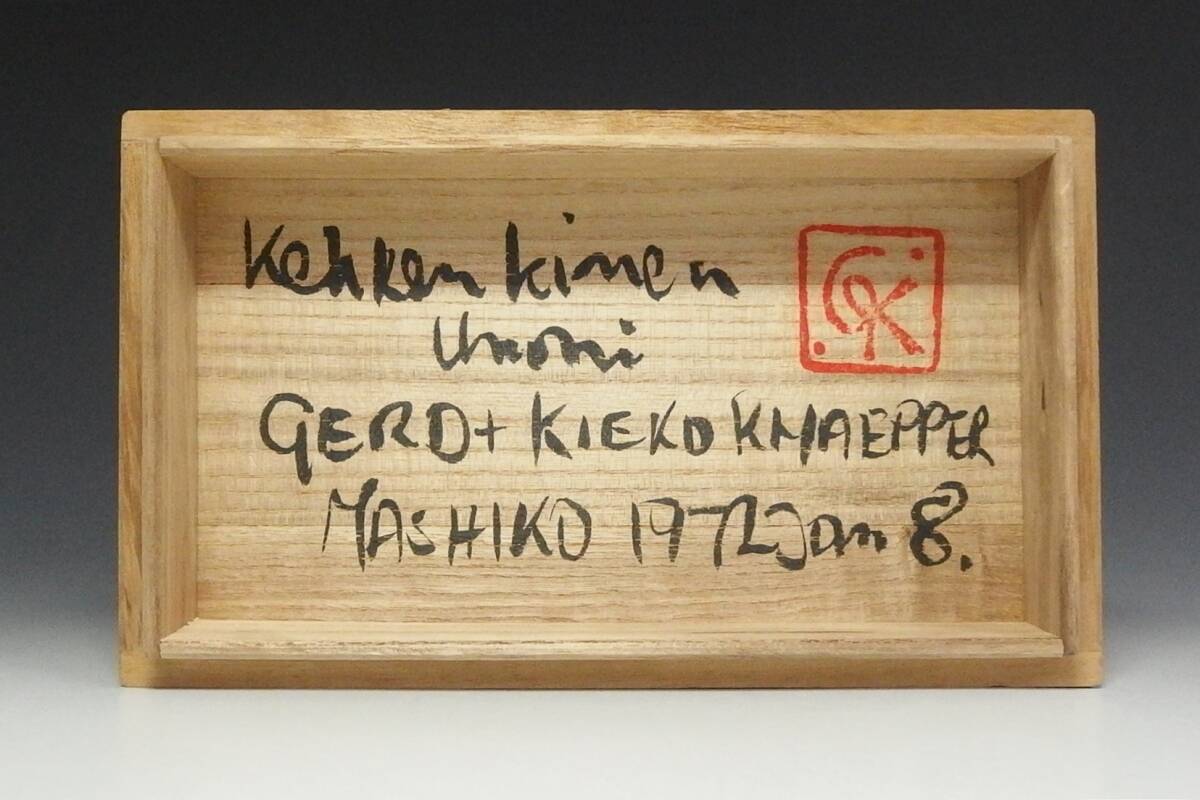 Kekken kinen
Unomi
GERD + KIEKO KNAEPPER
MASHIKO 1972 Jan 8.
GK